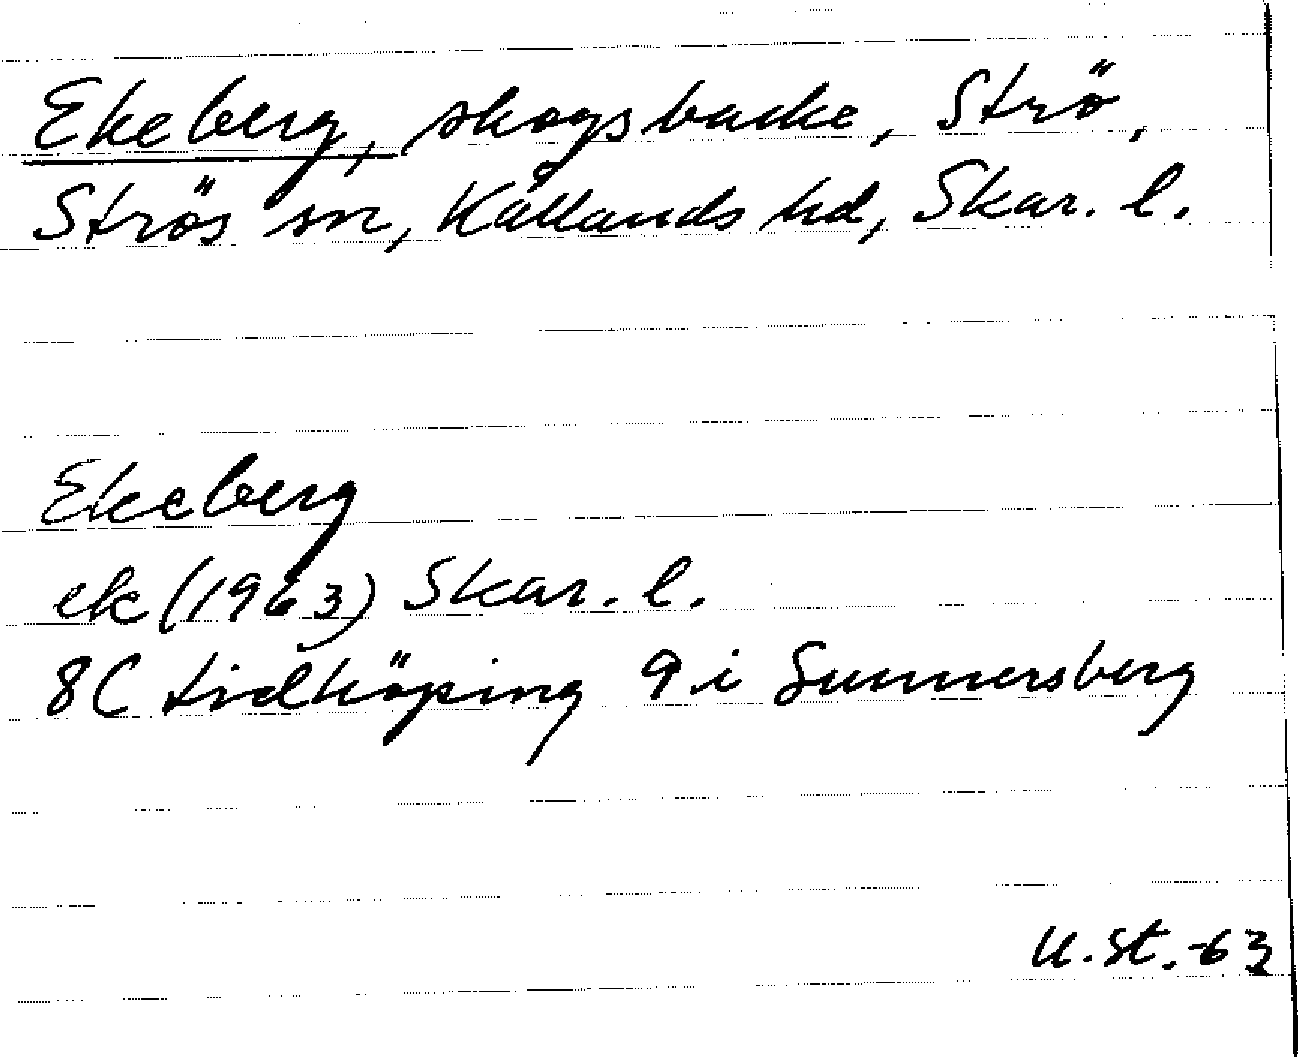 Ekeberg, skogsbacke, Strö,
Strös sn, Kållands hd, Skar. l.
Ekeberg
ek (1963) Skar. l.
8C Lidköping 9i Sunnersberg
U.St.-63